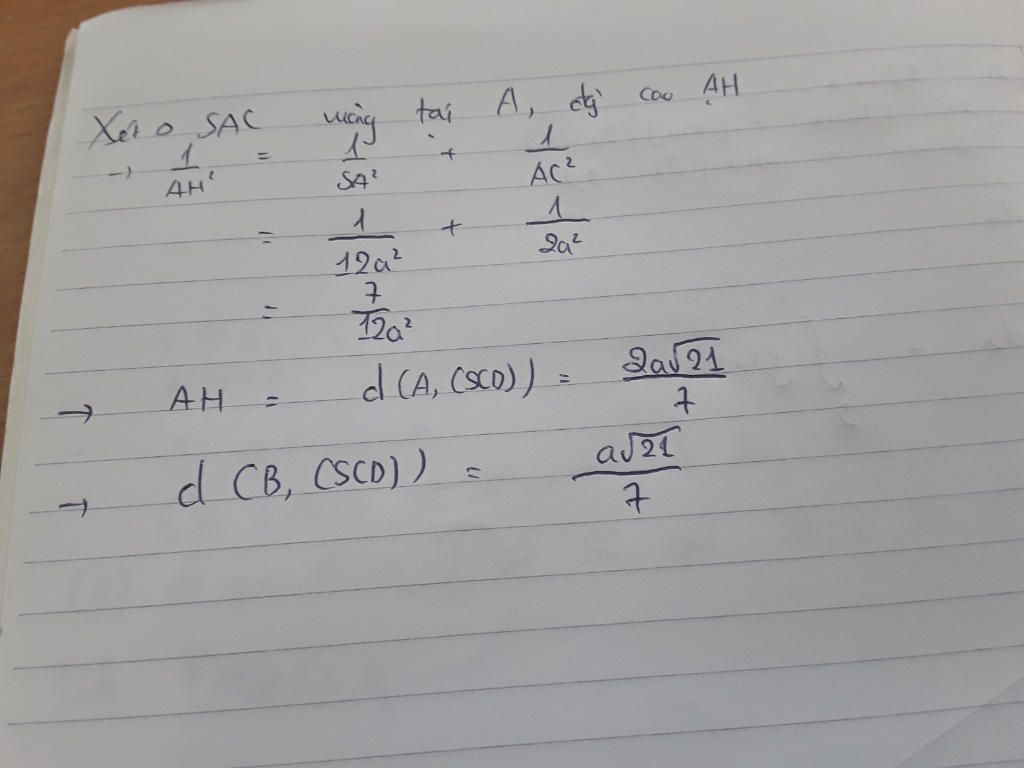 Xét △ SAC vuông tại A, đg cao AH
→ 1/AH² = 1/SA² + 1/AC²
= 1/12a² + 1/2a²
= 7/12a²
→ AH = d(A, (SCD)) = 2a√21/7
→ d(B, (SCD)) = a√21/7